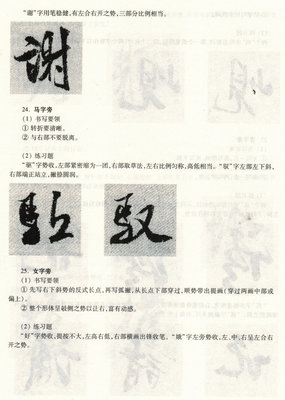 “谢”字用笔稳健,有左合右开之势,三部分比例相当。
謝
24. 马字旁
(1) 书写要领
① 转折要清晰。
② 与右部不要脱离。
(2) 练习题
“驱”字势收,左部紧密缩为一团,右部取草法,左右比例匀称,高低相当。“驭”字左部左下斜,
右部端正站立,撇捺圆润。
驭
25. 女字旁
(1) 书写要领
① 先写右下斜势的反式长点,再写弧撇,从长点下部穿过,顺势带出提画(穿过两画中部或
偏上)。
② 整个形体呈敧侧之势以正右,富有动感。
(2) 练习题
“好”字势收,提按不大,左高右低,右部横画出锋收笔。“娥”字左旁势收,左、中、右呈左合右
开之势。